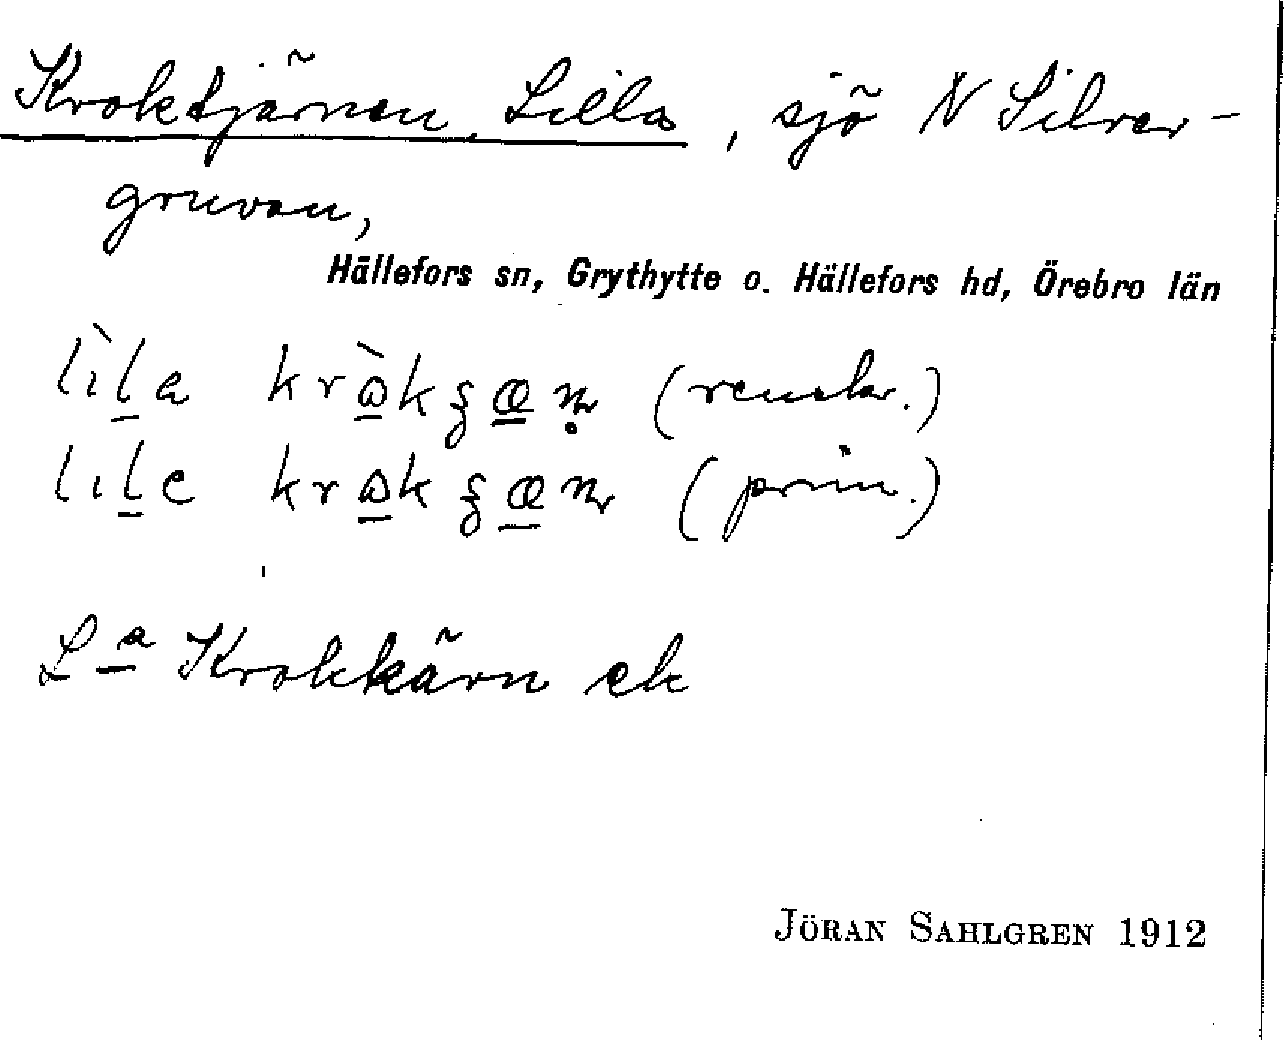 Kroktjärnen, Lilla, sjö N Silver-
gruvan,
Hällefors sn, Grythytte o. Hällefors hd, Örebro län
(renskr.)
(prim.)
L:a Krokkärn ek
JÖRAN SAHLGREN 1912